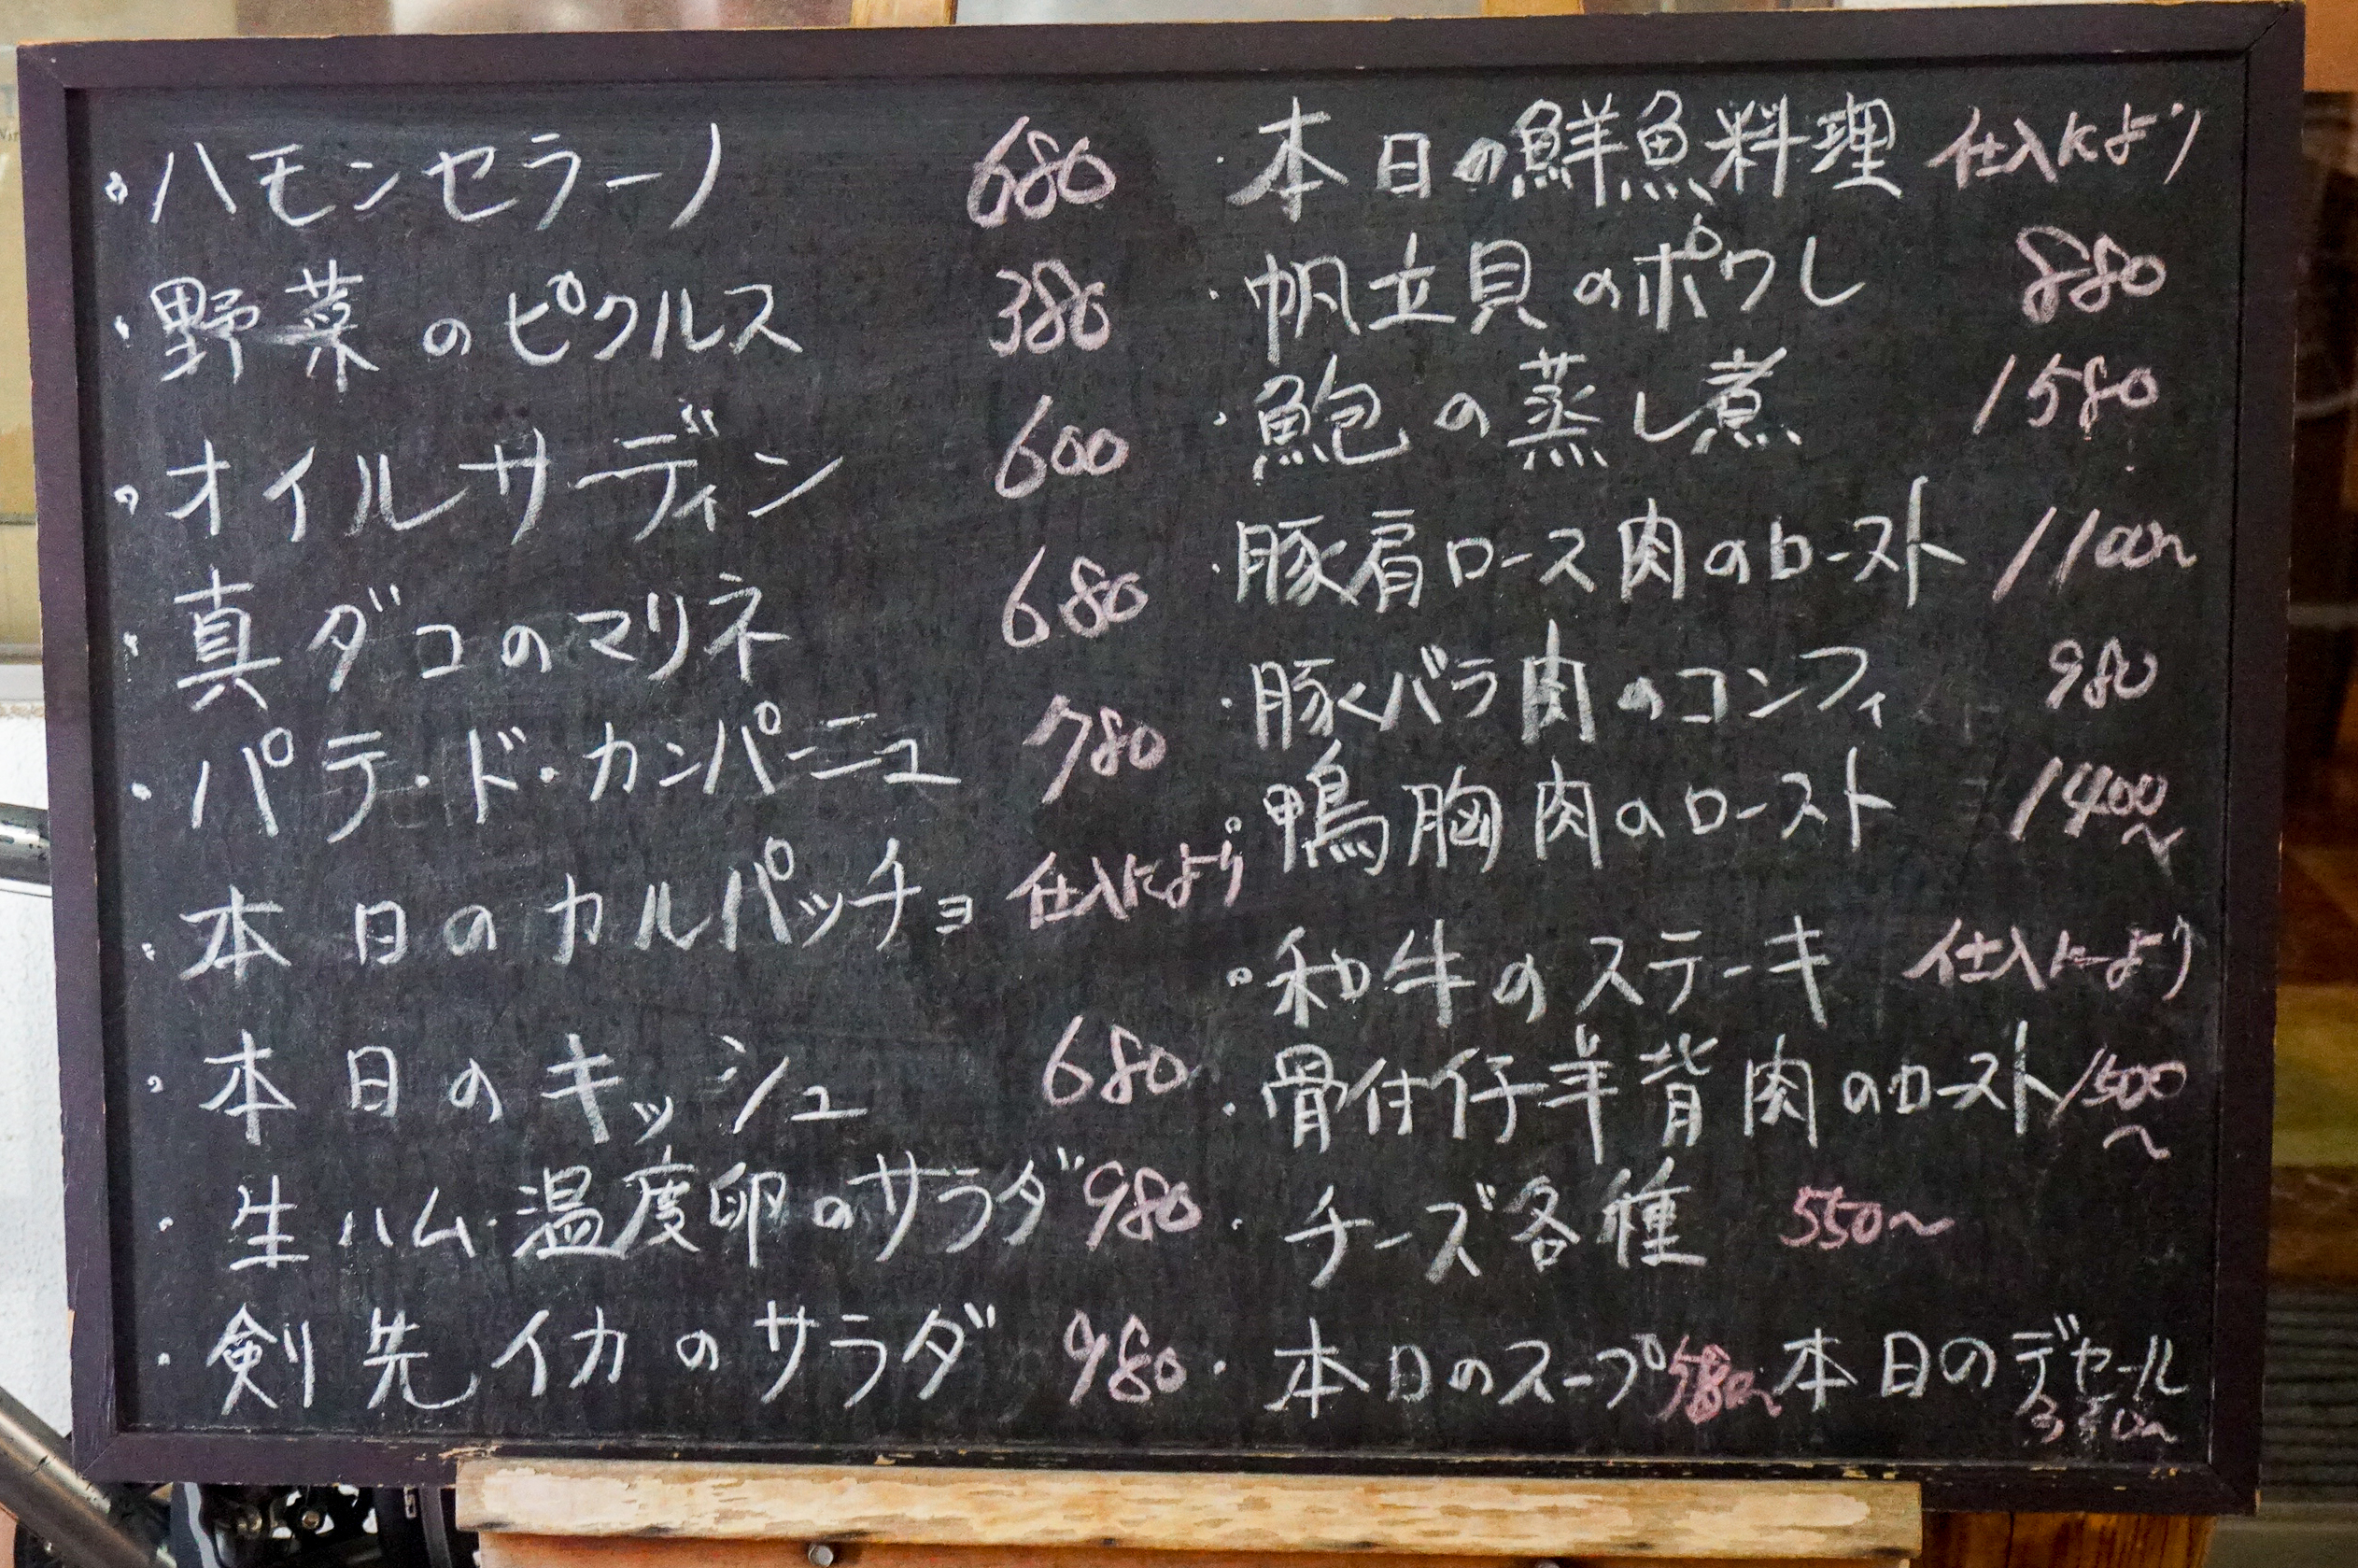 ・ハモンセラーノ 680
・野菜のピクルス 380
・オイルサーディン 600
・真ダコのマリネ 680
・パテ・ド・カンパーニュ 780
・本日のカルパッチョ 仕入により
・本日のキッシュ 680
・生ハム・温度卵のサラダ 980
・剣先イカのサラダ 980
・本日の鮮魚料理 仕入により
・帆立貝のポワレ 880
・鮑の蒸し煮 1580
・豚肩ロース肉のロースト 1100〜
・豚バラ肉のコンフィ 980
・鴨胸肉のロースト 1400〜
・和牛のステーキ 仕入により
・骨付仔羊背肉のロースト 1500〜
・チーズ各種 550〜
・本日のスープ 580〜 ・本日のデセール